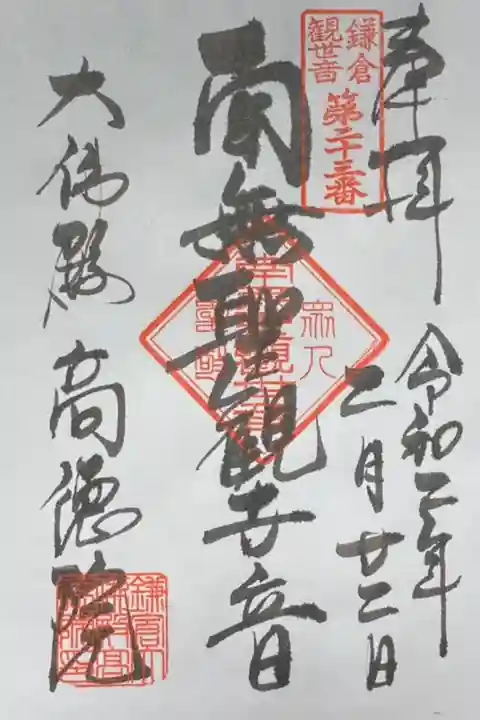 奉拝
令和二年
二月廿二日
鎌倉
観世音
第二十三番
南無聖觀世音
大佛殿 高徳院